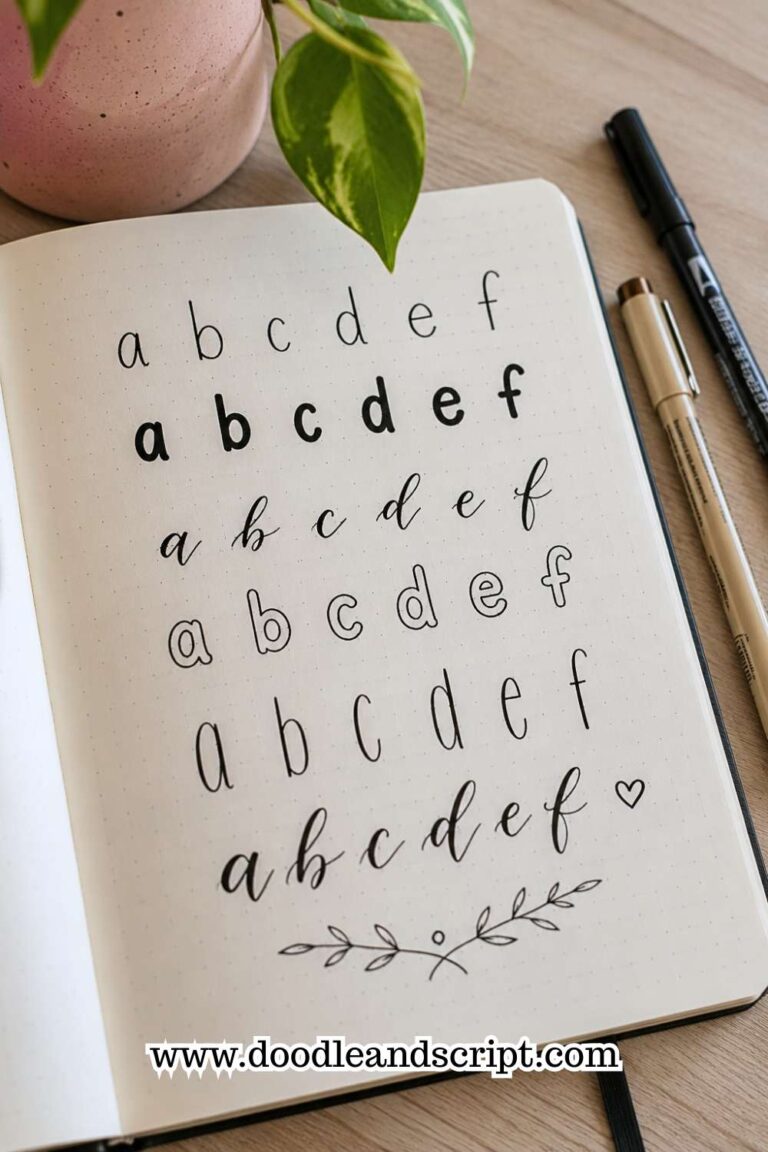 a b c d e f
a b c d e f
a b c d e f
a b c d e f
a b c d e f
a b c d e f
www.doodleandscript.com